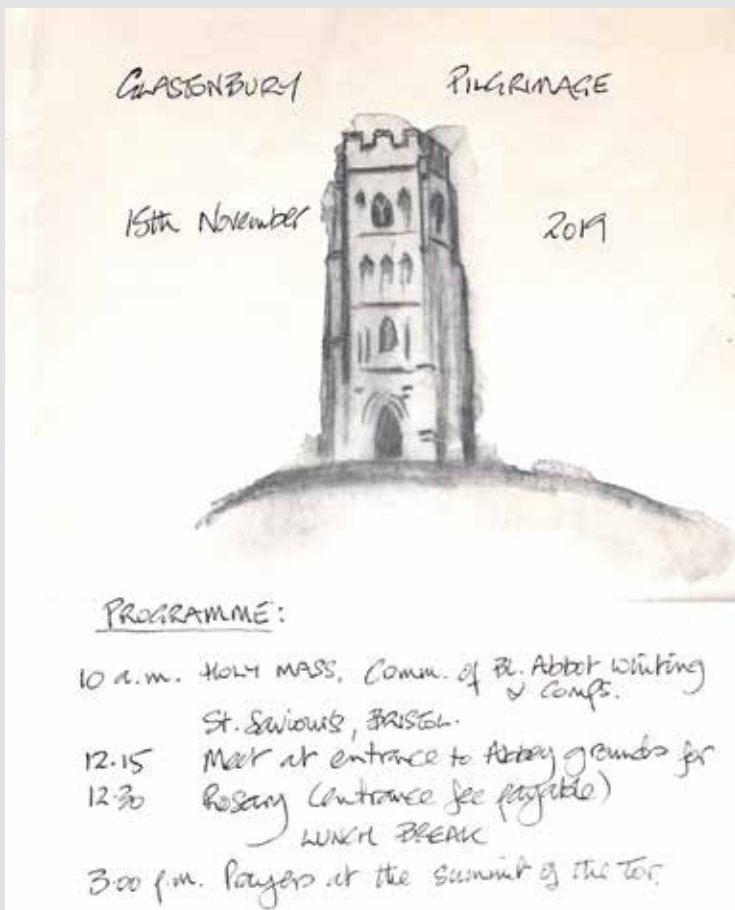 GLASTONBURY PILGRIMAGE
15th November 2019
PROGRAMME:
10 a.m. HOLY MASS, Comm. of Bl. Abbot Whiting & Comps.
St. Saviour's, BRISTOL.
12.15 Meet at entrance to Abbey grounds for
12.30 Rosary (entrance fee payable)
LUNCH BREAK
3.00 p.m. Prayers at the summit of the Tor.